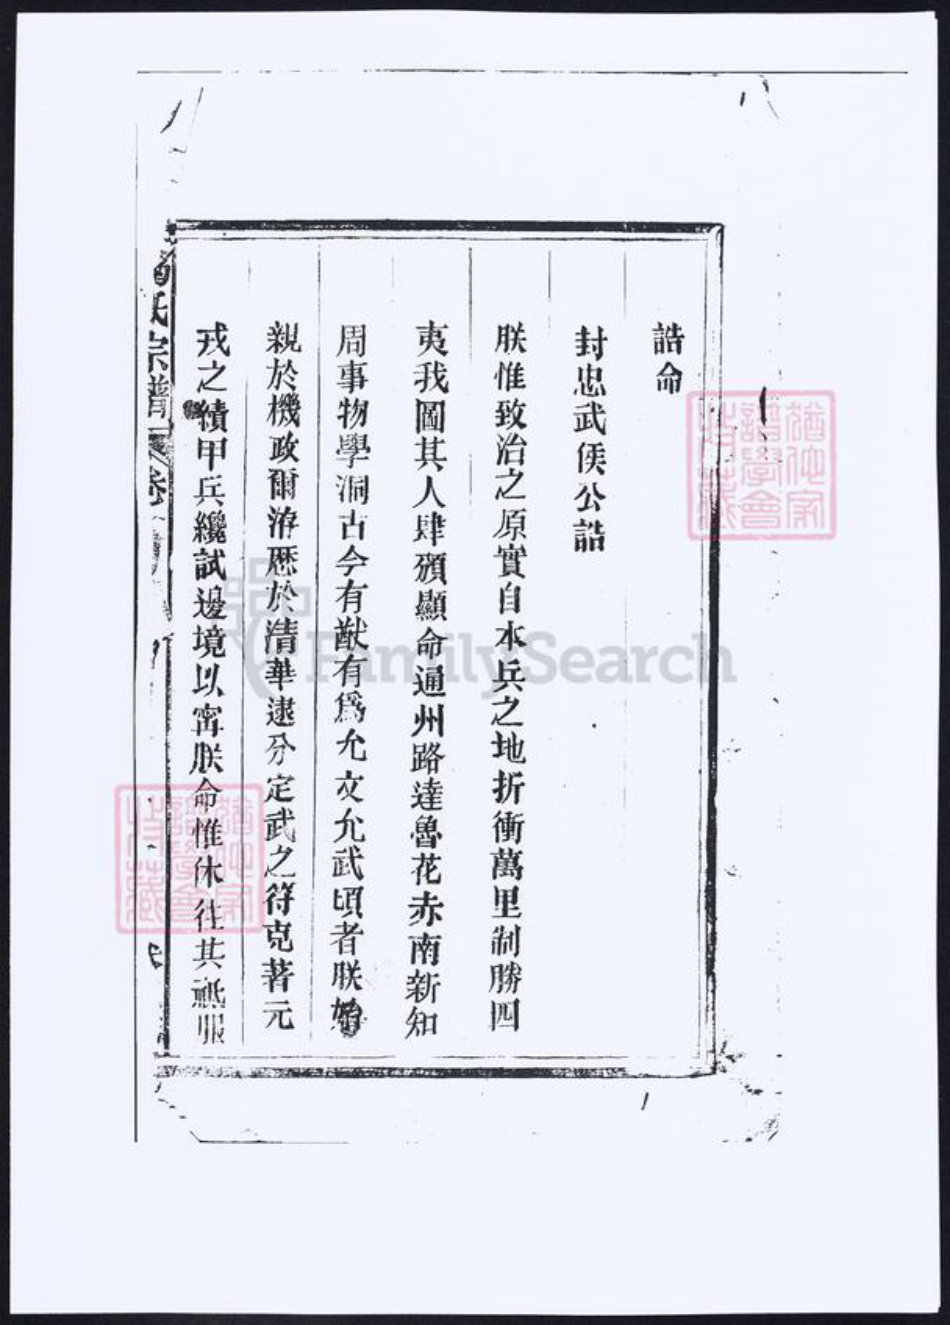 誥命
封忠武侯公誥
朕惟致治之原實自本兵之地折衝萬里制勝四
夷我圖其人肆頒顯命通州路達魯花赤南新知
周事物學洞古今有猷有爲允文允武頃者朕始
親於機政爾洊歷於清華逮分定武之符克著元
戎之績甲兵纔試邊境以寧朕命惟休往其祗服
氏宗譜
卷
FamilySearch